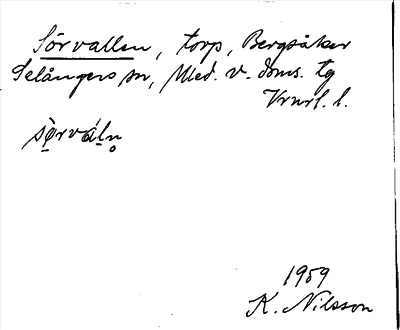 Sörvallen, torp, Bergsåker
Selångers sn, Med. v. doms. tg
Vrnrl. l.
sörváln̥
1959
K. Nilsson